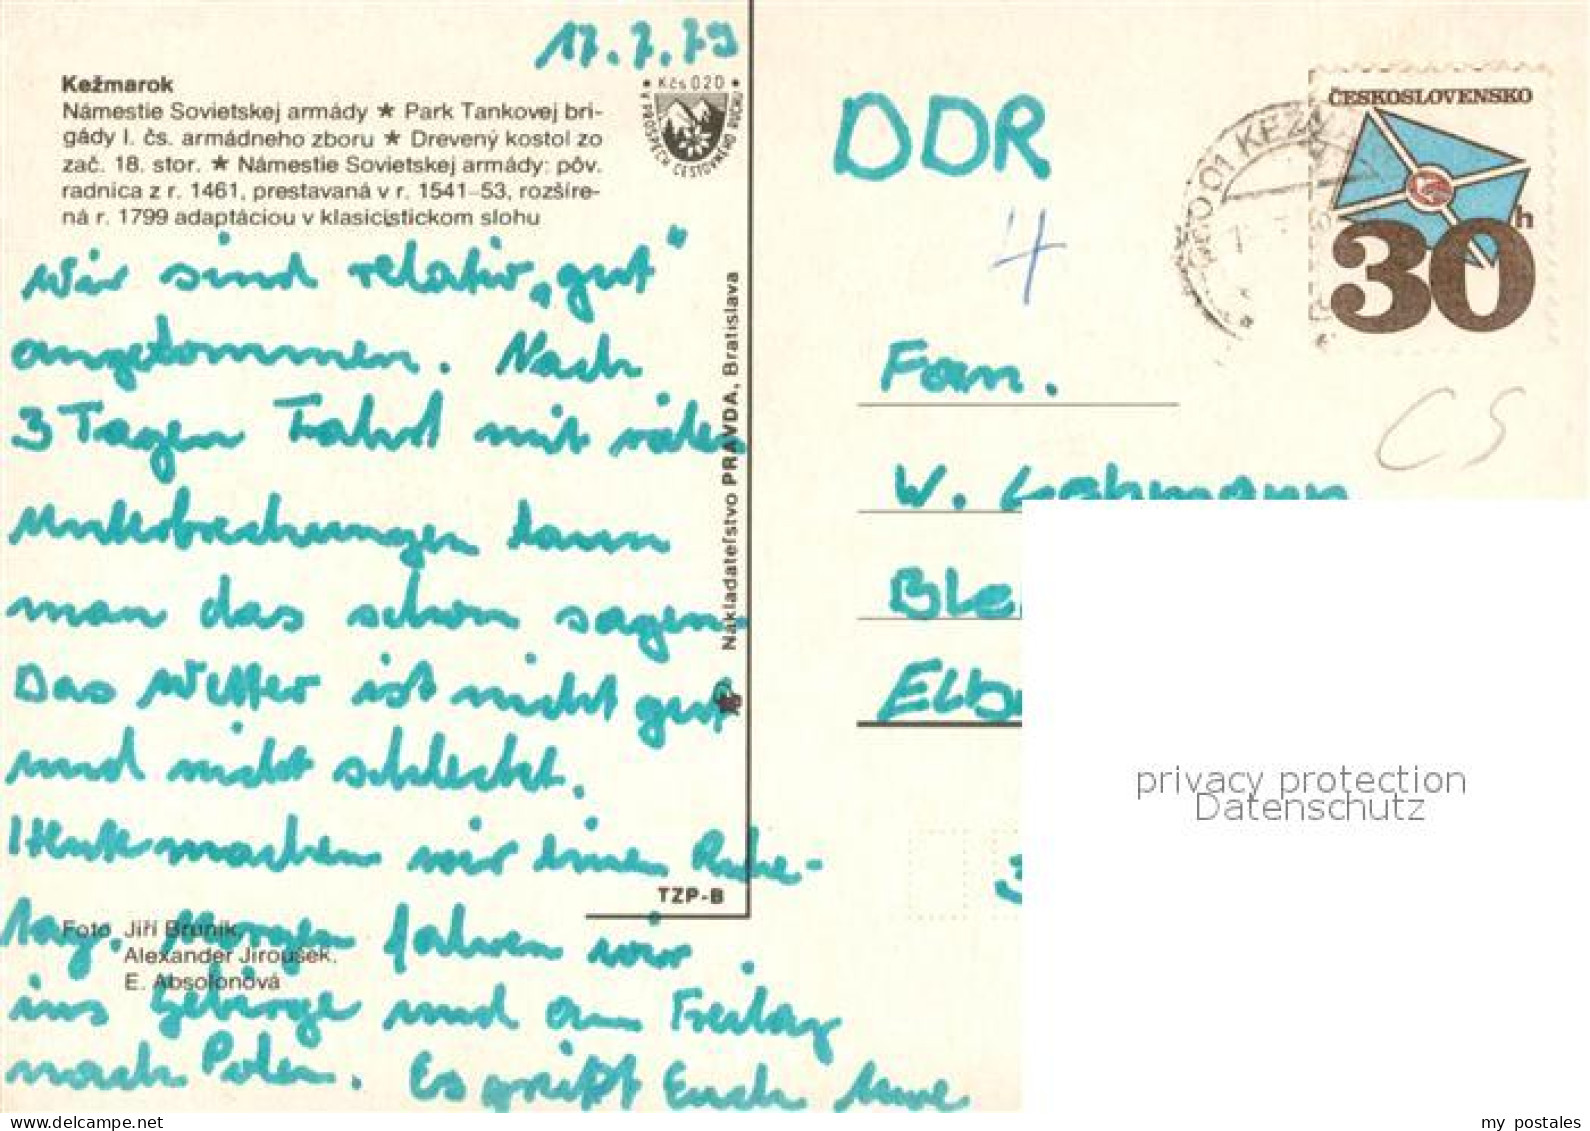 17.7.79
Kežmarok
Námestie Sovietskej armády ★ Park Tankovej bri-
gády I. čs. armádneho zboru ★ Drevený kostol zo
zač. 18. stor. ★ Námestie Sovietskej armády: pôv.
radnica z r. 1461, prestavaná v r. 1541–53, rozšíre-
ná r. 1799 adaptáciou v klasicistickom slohu
Kčs 020
V PROSPECH CESTOVNÉHO RUCHU
Wir sind relativ „gut"
angekommen. Nach
3 Tagen Fahrt mit vielen
Unterbrechungen kann
man das schon sagen.
Das Wetter ist nicht gut
und nicht schlecht.
Heute machen wir einen Ruhe-
tag. Morgen fahren wir
ins Gebirge und am Freitag
nach Polen. Es grüßt Euch Uwe
Foto Jiří Bruník,
Alexander Jiroušek,
E. Absolonová
Nakladateľstvo PRAVDA, Bratislava
TZP-B
DDR
4
ČESKOSLOVENSKO
30 h
01 KEŽ
CS
Fam.
W. Lahmann
Ble
Elb
3
privacy protection
Datenschutz
my postales